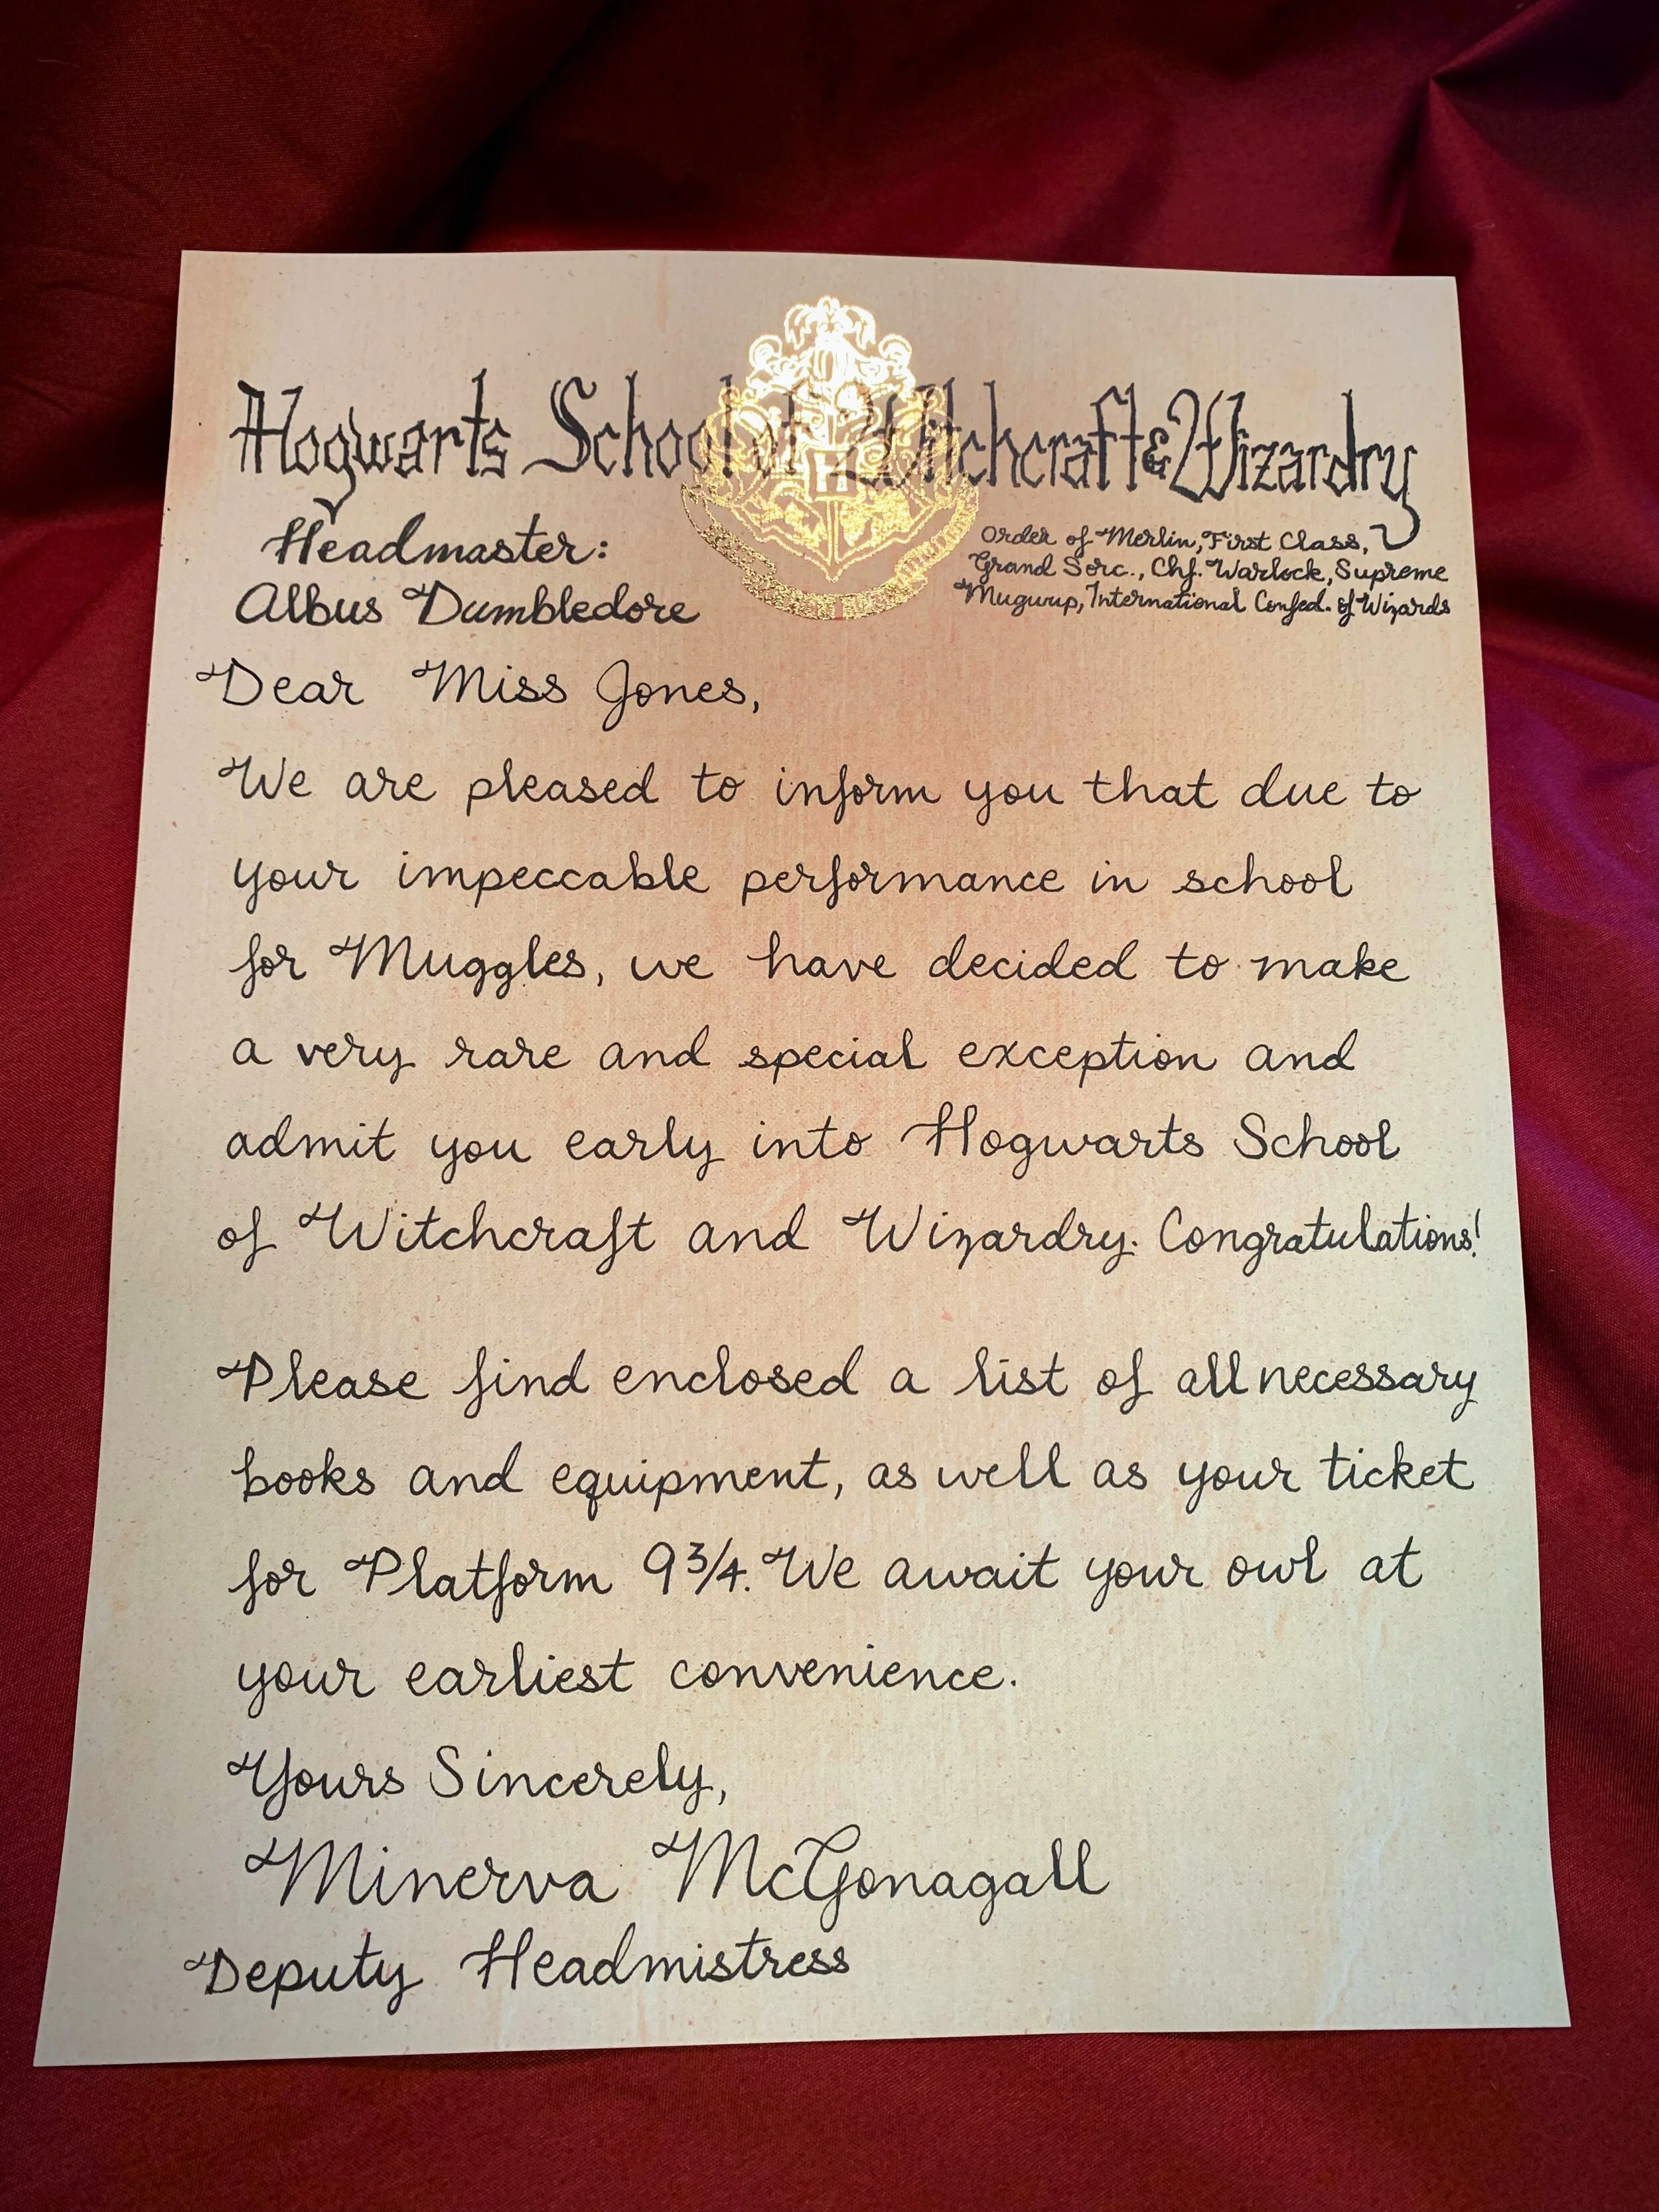 Hogwarts School of Witchcraft & Wizardry
Headmaster:
Albus Dumbledore
Order of Merlin, First Class,
Grand Sorc., Chf. Warlock, Supreme
Mugwup, International Confed. of Wizards
Dear Miss Jones,
We are pleased to inform you that due to
your impeccable performance in school
for Muggles, we have decided to make
a very rare and special exception and
admit you early into Hogwarts School
of Witchcraft and Wizardry. Congratulations!
Please find enclosed a list of all necessary
books and equipment, as well as your ticket
for Platform 9 3/4. We await your owl at
your earliest convenience.
Yours Sincerely,
Minerva McGonagall
Deputy Headmistress